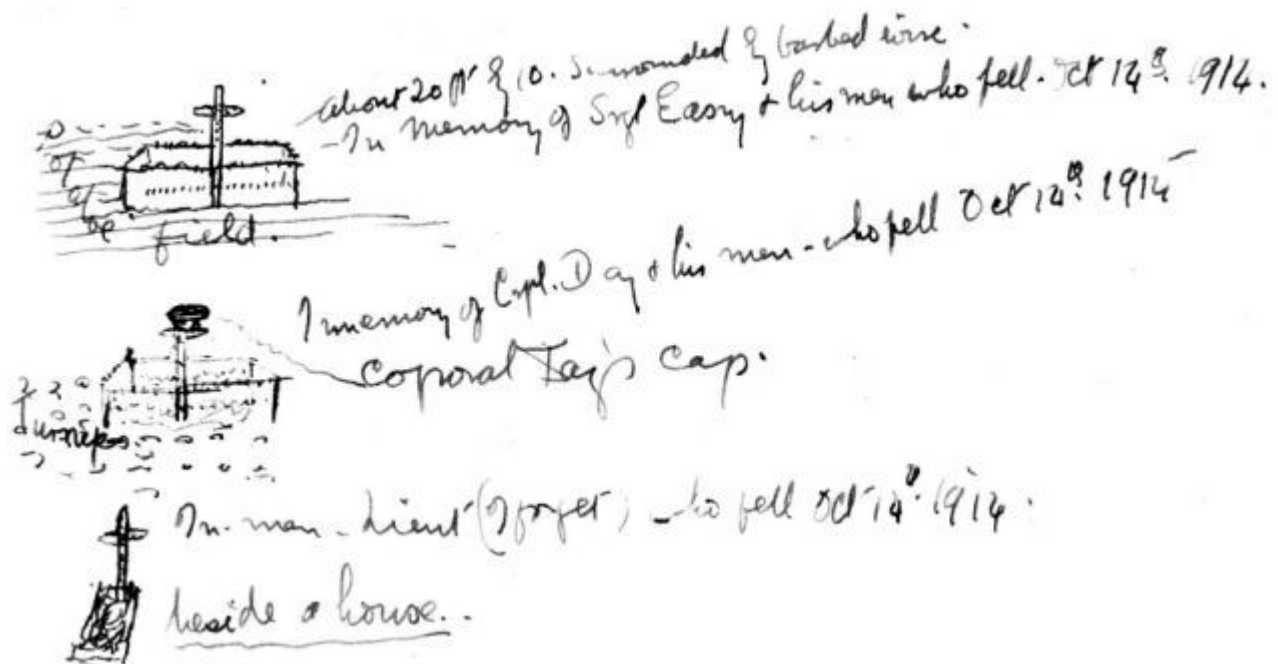 about 20 ft by 10. Surrounded by barbed wire.
- In memory of Sgt Easry & his men who fell. Oct 14th. 1914.
field.
In memory of Cpl. Day & his men - who fell Oct 14th. 1914
Coporal Day's cap.
Turnips
In. mem. Lieut (I forget) who fell Oct 14th. 1914.
beside a house..